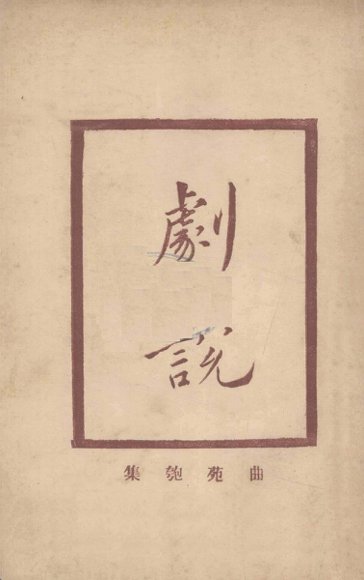 劇說
曲苑匏集